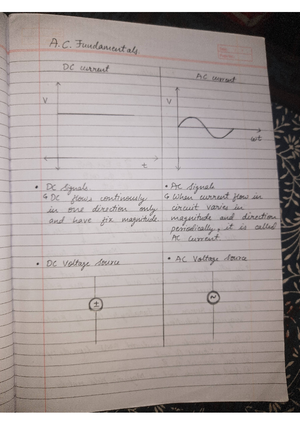 A.C. Fundamentals
DC current
AC current
V
t
V
ωt
• DC Signals
↳ DC flows continously
in one direction only
and have fix magnitude.
• AC Signals
↳ When current flow in
circuit varies in
magnitude and direction
periodically, it is called
AC current
• DC Voltage Source
• AC Voltage Source
±
~